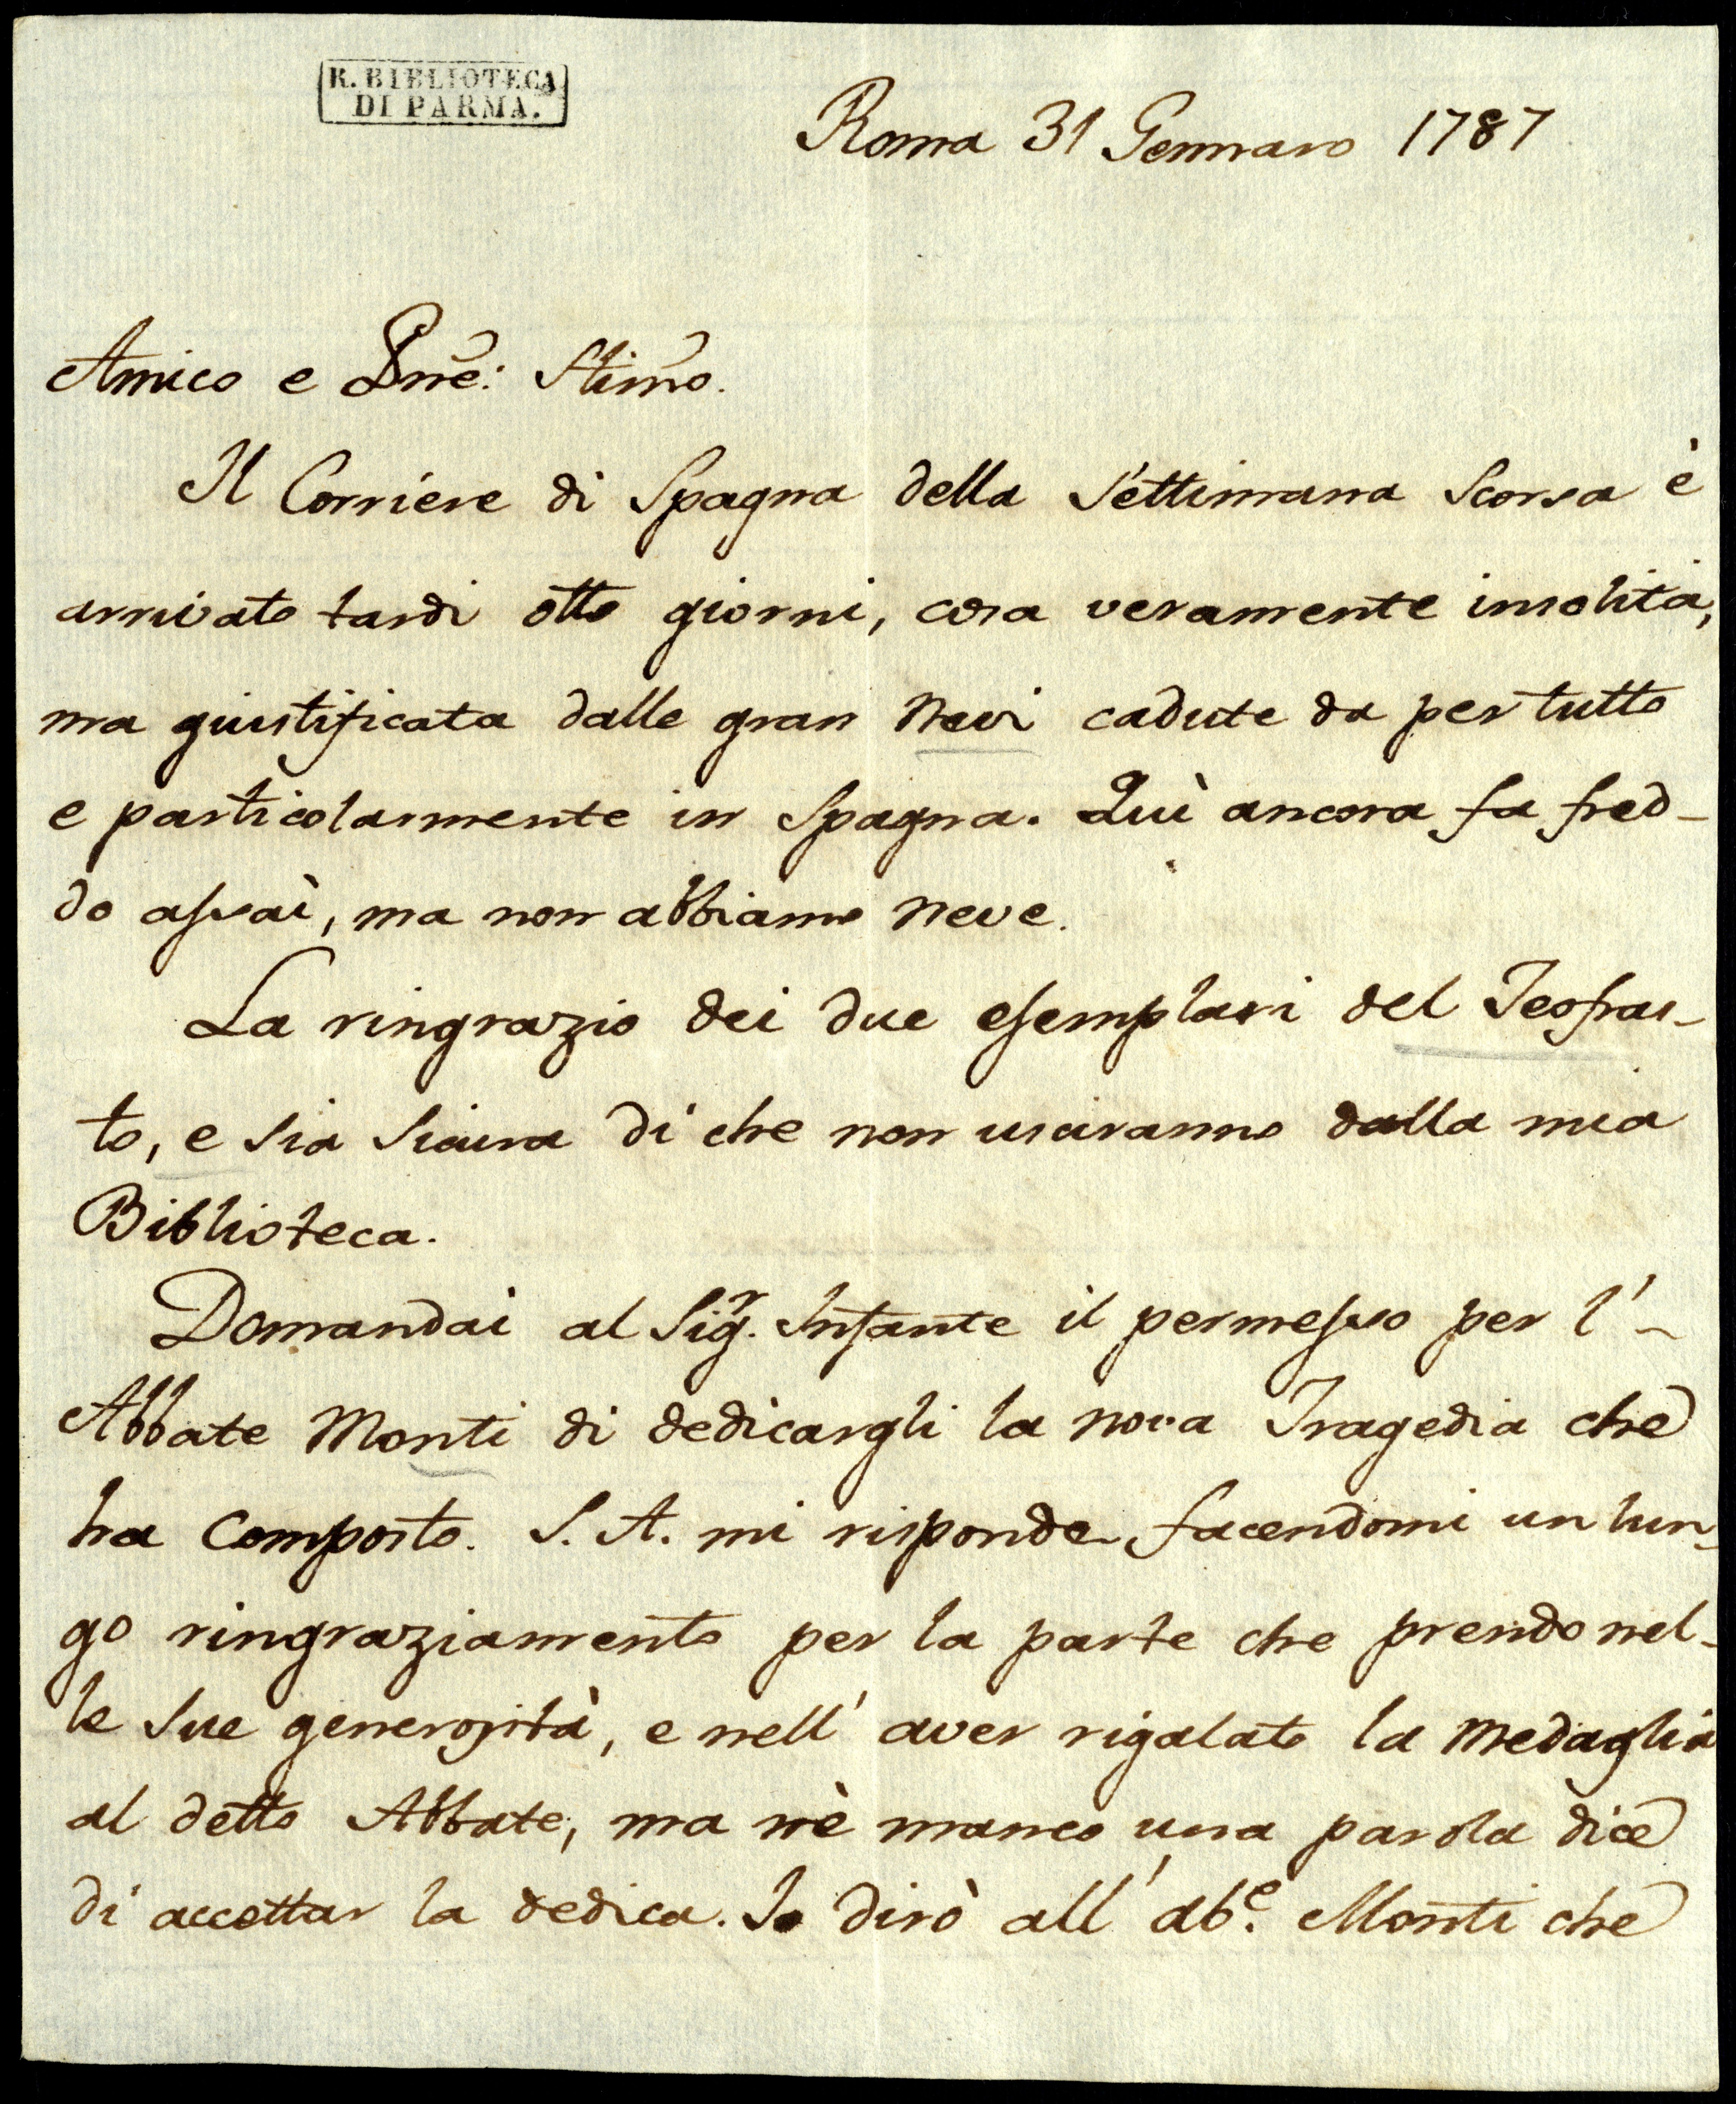 R. BIBLIOTECA
DI PARMA.
Roma 31 Gennaro 1787
Amico e Pñe: Stimo.
Il Corriere di Spagna della Settimana Scorsa è
arrivato tardi otto giorni, cosa veramente insolita,
ma giustificata dalle gran Nevi cadute da per tutto
e particolarmente in Spagna. Quì ancora fa fred-
do assai, ma non abbiamo Neve.
La ringrazio dei due esemplari del Teofras-
to, e Sia Sicura di che non usciranno dalla mia
Biblioteca.
Domandai al Sigr. Infante il permesso per l'-
Abbate Monti di dedicargli la nova Tragedia che
ha Composto. S. A. mi risponde facendomi un lun-
go ringraziamento per la parte che prendo nel-
le Sue generosità, e nell' aver rigalato la Medaglia
al detto Abbate, ma nè manco una parola dice
di accettar la dedica. Io dirò all' abe. Monti che